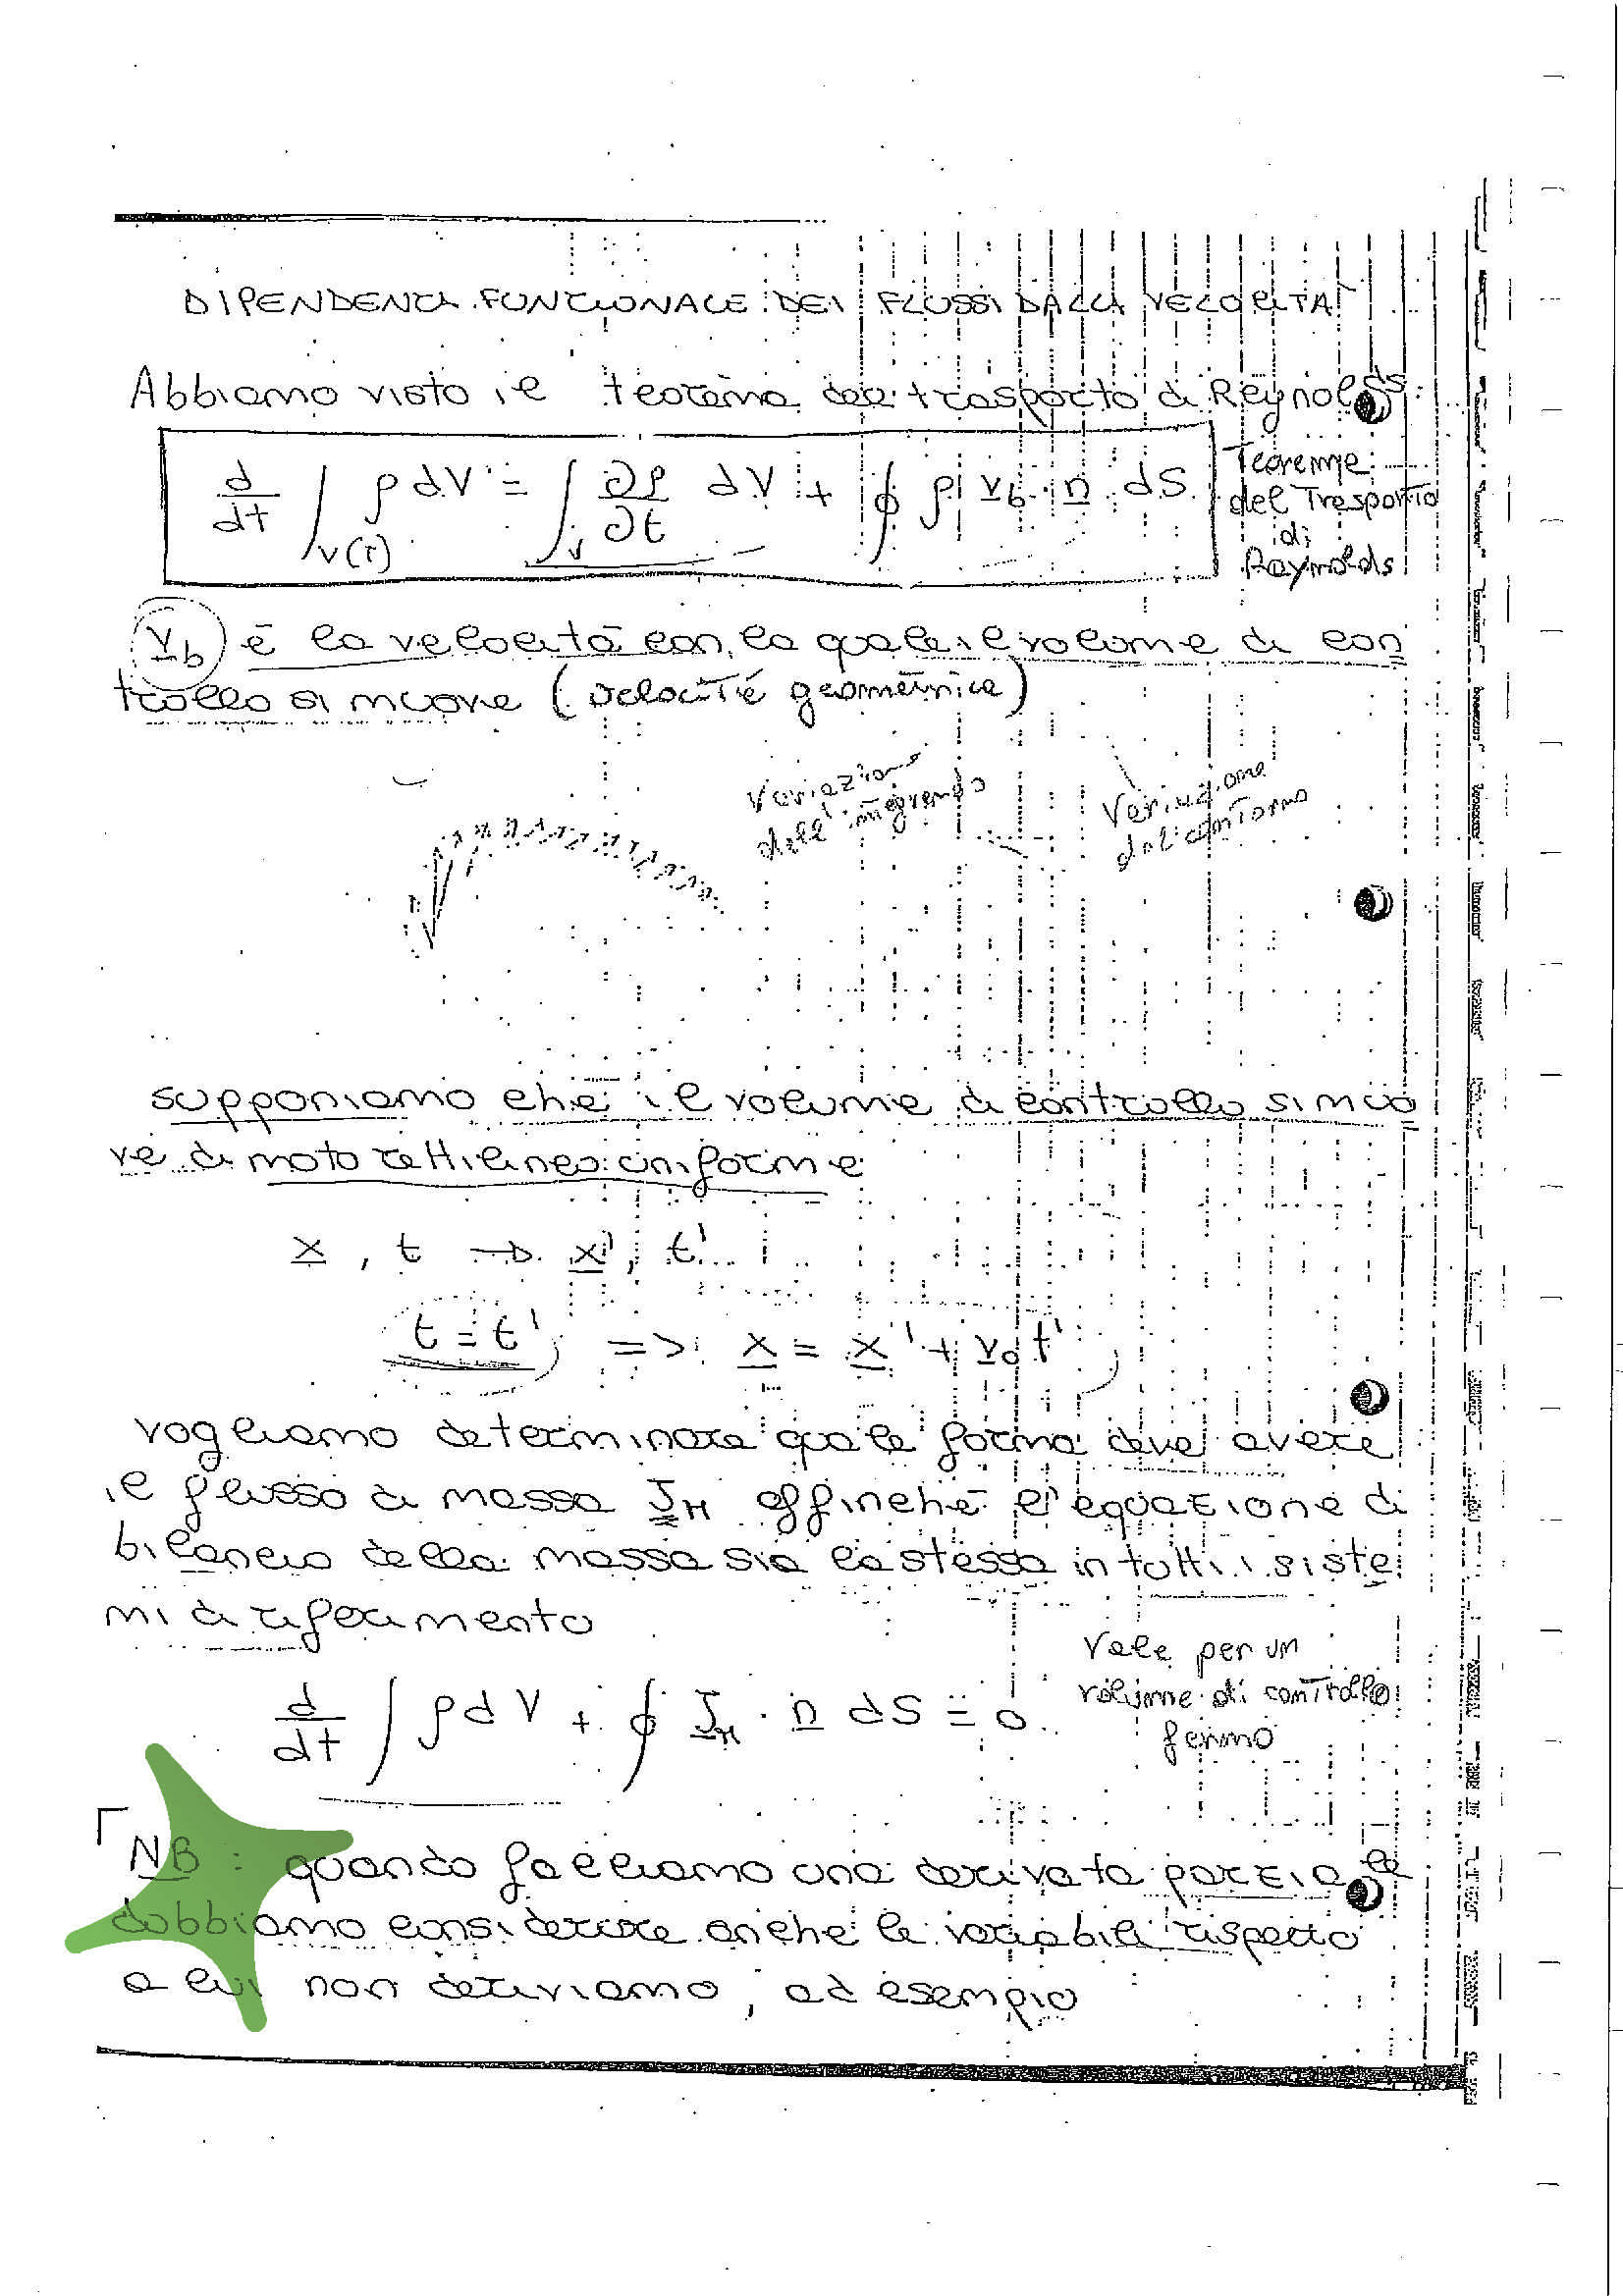 DIPENDENZA FUNZIONALE DEI FLUSSI DALLA VELOCITÀ
Abbiamo visto il teorema del trasporto di Reynolds:
d/dt ∫_V(t) ρ dV = ∫_V ∂ρ/∂t dV + ∮ ρ v_b · n dS
Teorema
del Trasporto
di
Reynolds
v_b è la velocità con la quale il volume di con
trollo si muove (velocità geometrica)
Variazione
dell'integrando
Variazione
del contorno
supponiamo che il volume di controllo si muo
ve di moto rettilineo uniforme
x, t → x', t'
t = t' => x = x' + v_0 t'
vogliamo determinare quale forma deve avere
il flusso di massa J_M affinchè l'equazione di
bilancio della massa sia la stessa in tutti i siste
mi di riferimento
d/dt ∫ ρ dV + ∮ J_M · n dS = 0
Vale per un
volume di controllo
fermo
NB: quando facciamo una derivata parziale
dobbiamo considerare anche le variabili rispetto
a cui non deriviamo, ad esempio